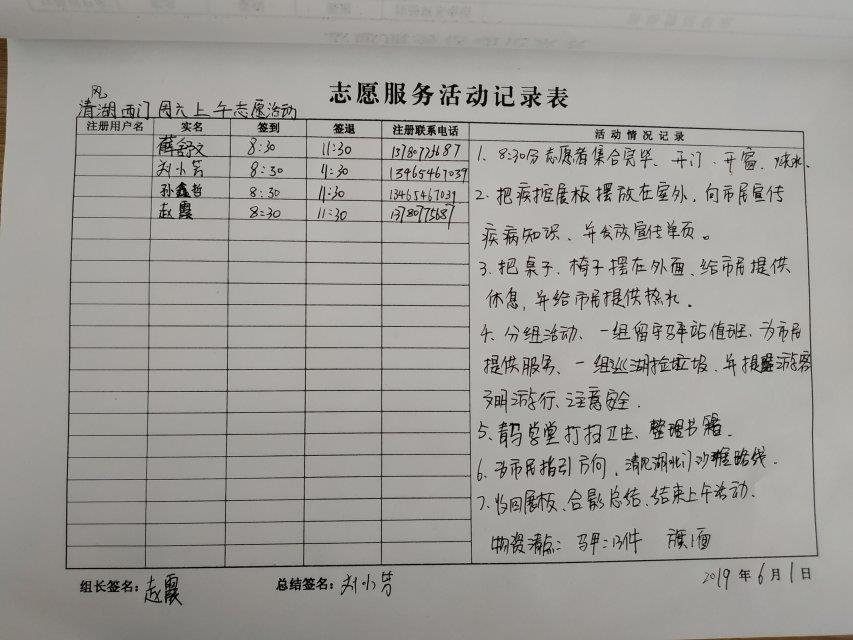 志愿服务活动记录表
风
清湖西门周六上午志愿活动
注册用户名 实名 签到 签退 注册联系电话 活动情况记录
薛舒文 8:30 11:30 13780775687
刘小芳 8:30 11:30 13465467039
孙鑫哲 8:30 11:30 13465467039
赵霞 8:30 11:30 13780775687
1、8:30分志愿者集合完毕、开门、开窗、烧水、
2、把疾控展板摆放在室外,向市民宣传
疾病知识、并发放宣传单页。
3、把桌子、椅子摆在外面、给市民提供
休息,并给市民提供热水。
4、分组活动、一组留守驿站值班、为市民
提供服务、一组巡湖捡垃圾,并提醒游客
文明游行、注意安全.
5、青鸟学堂打扫卫生、整理书籍.
6、为市民指引方向,清风湖北门沙滩路线.
7、收回展板、合影总结、结束上午活动.
物资清点:马甲:13件 旗1面
组长签名:赵霞 总结签名:刘小芳 2019年6月1日